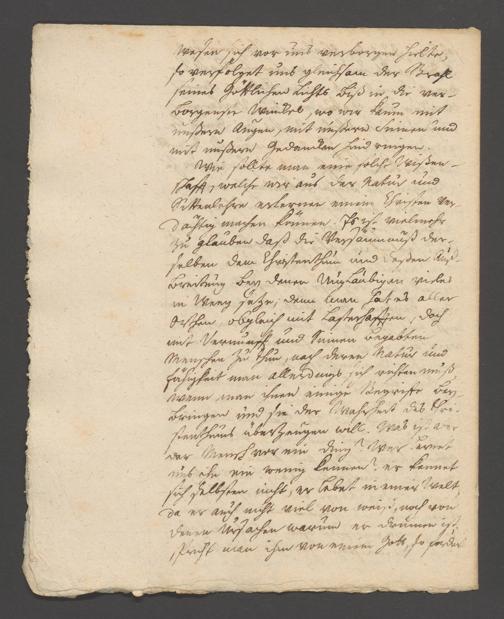 Wesen sich vor uns verborgen hielte,
so verfolget uns gleichsam der Strahl
seines Göttlichen Lichts biß in die ver-
borgenste Winkel, wo wir kaum mit
unßeren Augen, mit unßeren Sinnen und
mit unßeren Gedancken hindringen.
Wie sollte man eine solche Wißen-
schafft, welche wir aus der Natur und
Sittenlehre erlernen einem Christen ver-
dächtig machen können. Es ist vielmehr
zu glauben daß die Versäumnuß der-
selben dem Christenthum und deßen Auß-
breitung bey denen Ungläubigen vieles
in Weeg setze; denn man hat es aller
Orthen, obgleich mit lasterhafften, doch
mit Vernunfft und Sinnen begabten
Menschen zu thun, nach deren Natur und
Fähigkeit man allerdings sich richten muß
wenn man ihnen einige Begriffe bey-
bringen und sie der Wahrheit des Chri-
stenthums überzeugen will. Was ist aber
der Mensch vor ein Ding? Wer lernet
uns ihn ein wenig kennen? er kennet
sich selbsten nicht, er lebet in einer Welt,
da er auch nicht viel von weiß, noch von
denen Ursachen warum er drinnen ist.
Spricht man ihm von einem Gott, so